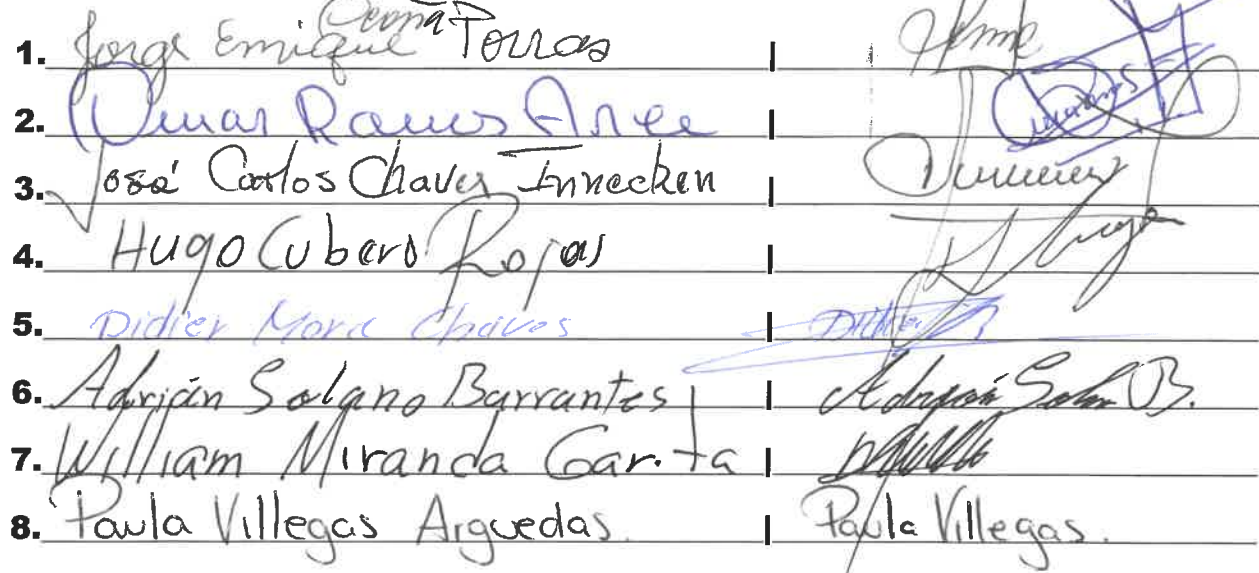 1. Jorge Enrique Ocaña Porras |
2. Omar Ramos Arce |
3. José Carlos Chaves Innecken |
4. Hugo Cubero Rojas | Hugo
5. Didier Mora Chaves | Didier
6. Adrián Solano Barrantes | Adrián Solan B.
7. William Miranda Garita |
8. Paula Villegas Arguedas. | Paula Villegas.